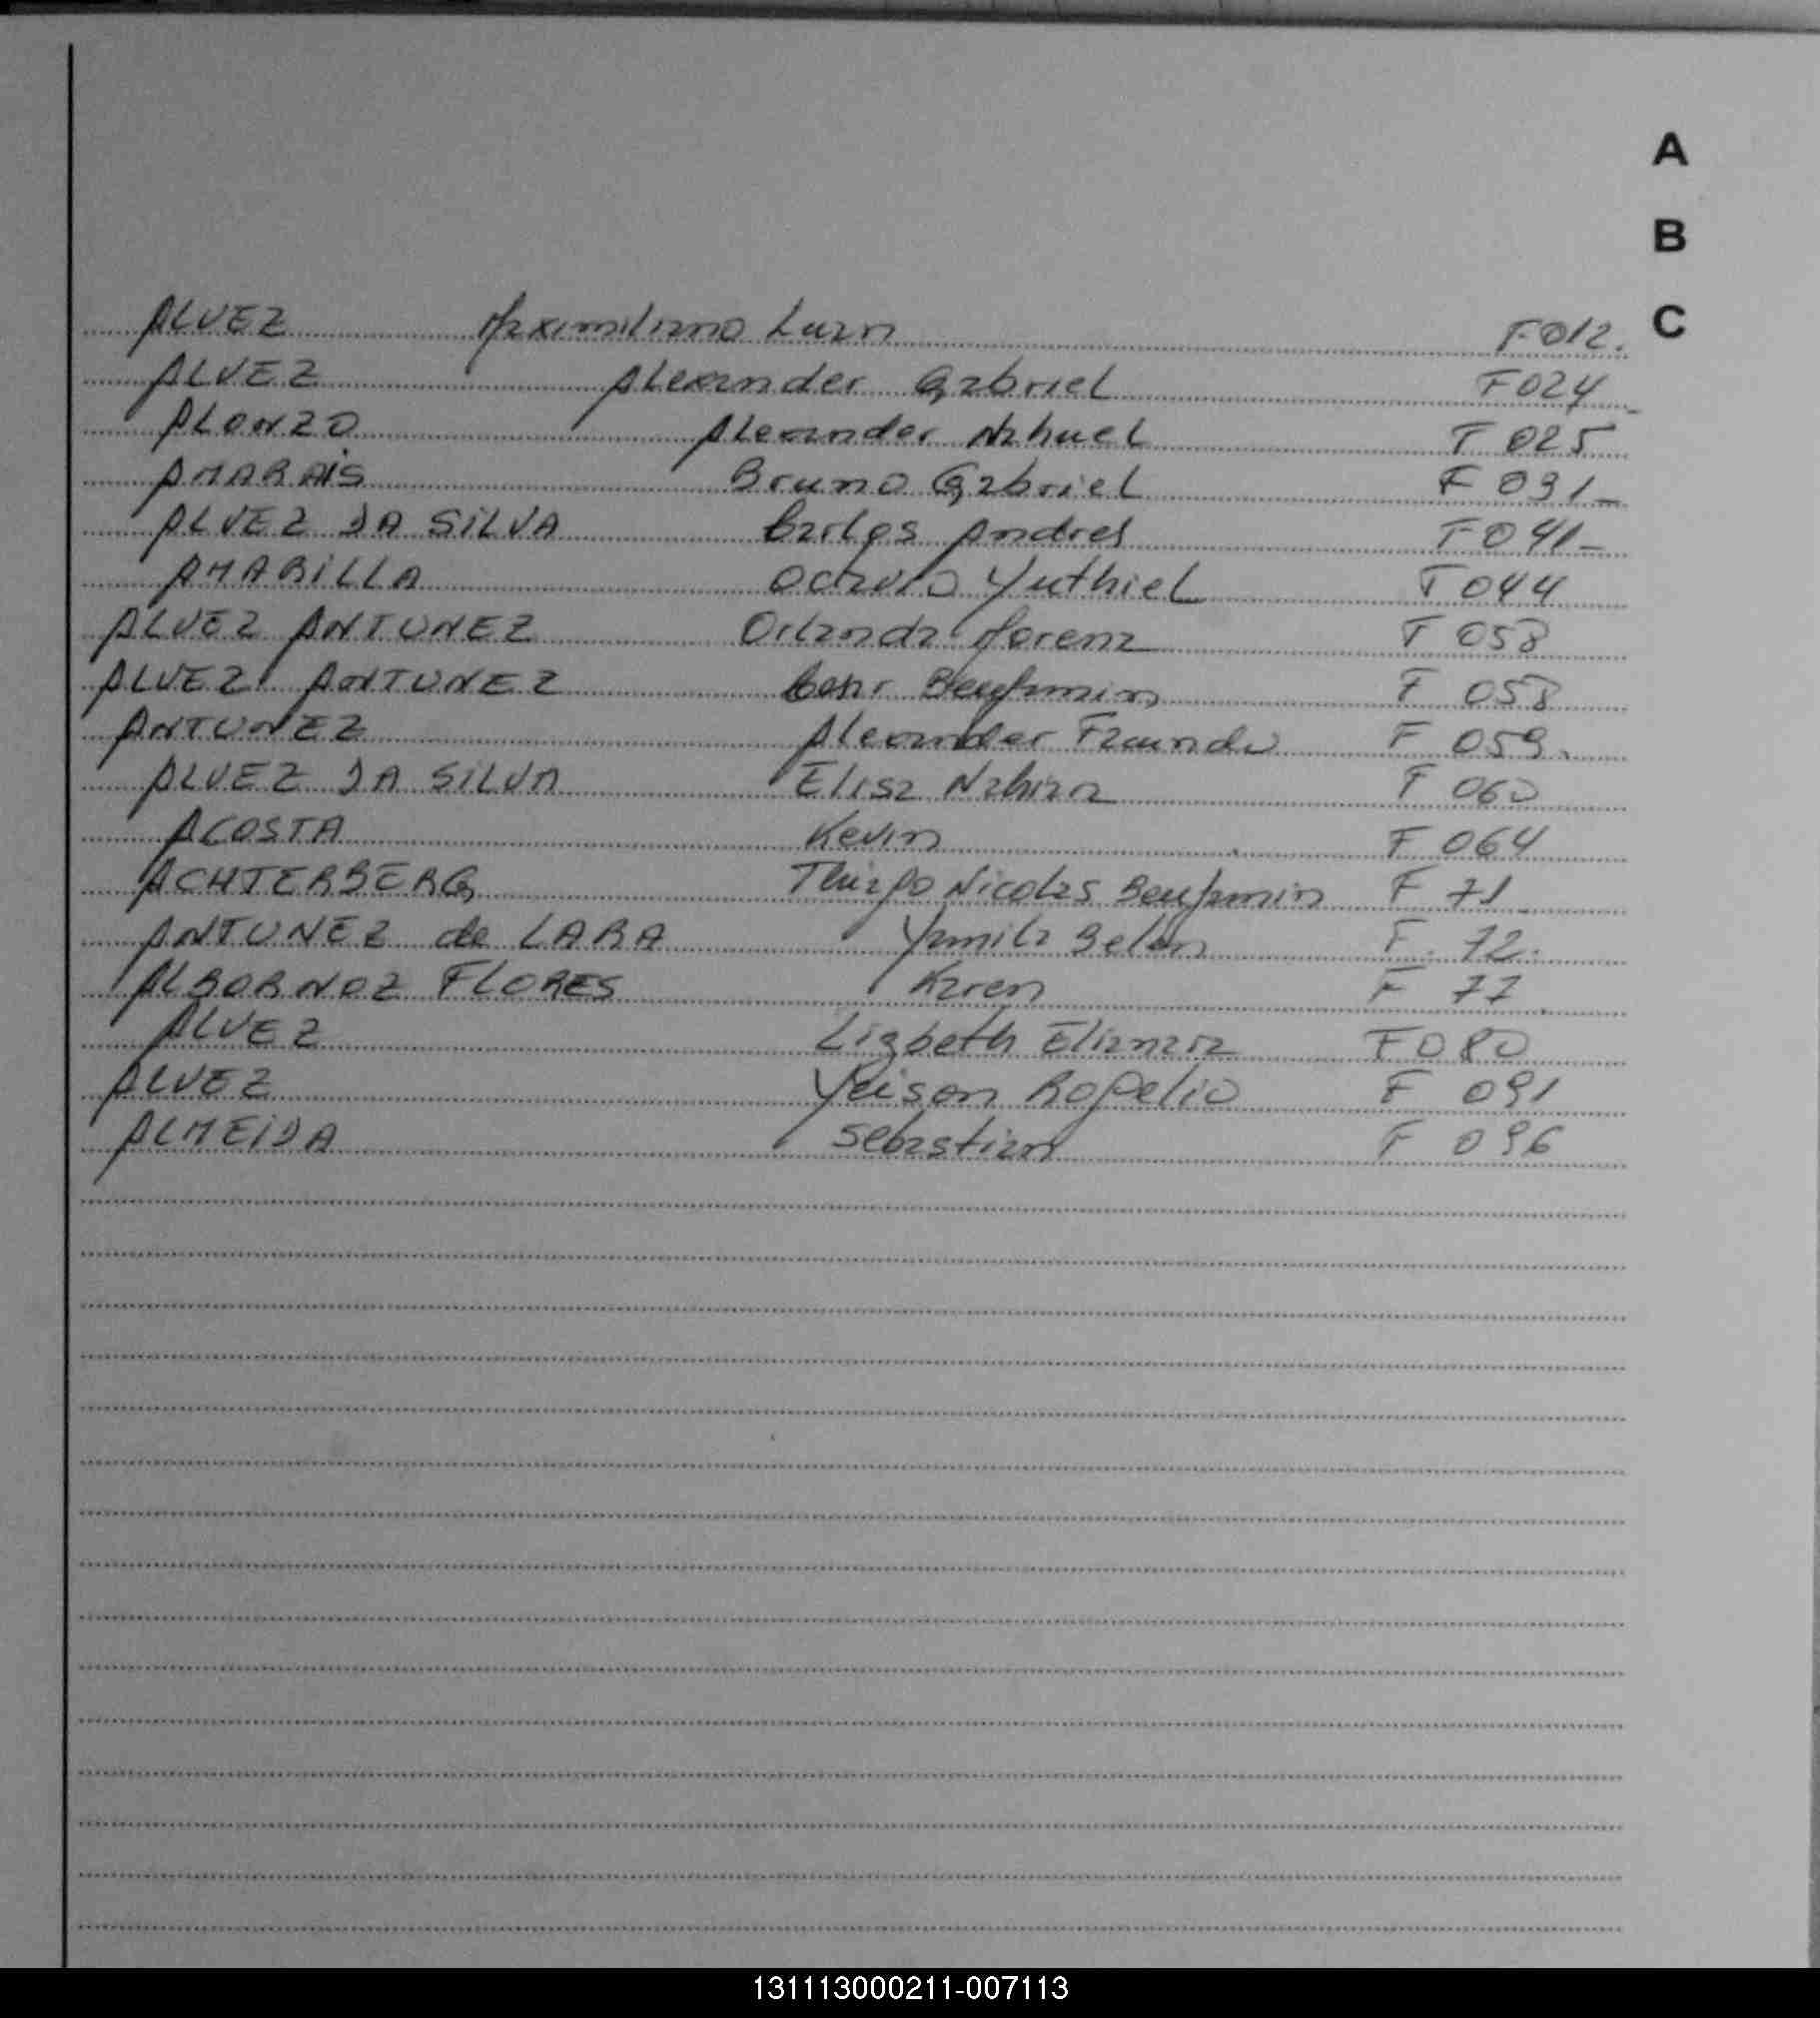 A
B
C
ALVEZ Maximiliano Luan F012.
ALVEZ Alexander Gabriel F024
ALONZO Alexander Nahuel F 025
AMARAIS Bruno Gabriel F 031-
ALVEZ DA SiLVA Carlos Andres F041-
AMARiLLA Octavio Yuthiel F 044
ALVEZ ANTUNEZ Orlanda Morena F 058
ALVEZ ANTUNEZ Benjamin F 058
ANTUNEZ Alexander Facundo F 059.
ALVEZ DA SiLVA Elisa Nahiara F 060
ACOSTA Kevin F 064
ACHTERBERG Thiago Nicolas Benjamin F 71
ANTUNEZ de LARA Yamila Belen F. 72.
ALBORNOZ FLORES Karen F 77
ALVEZ Lizbeth F080
ALVEZ Yeison Rogelio F 091
ALMEiDA Sebastian F 096
131113000211-007113